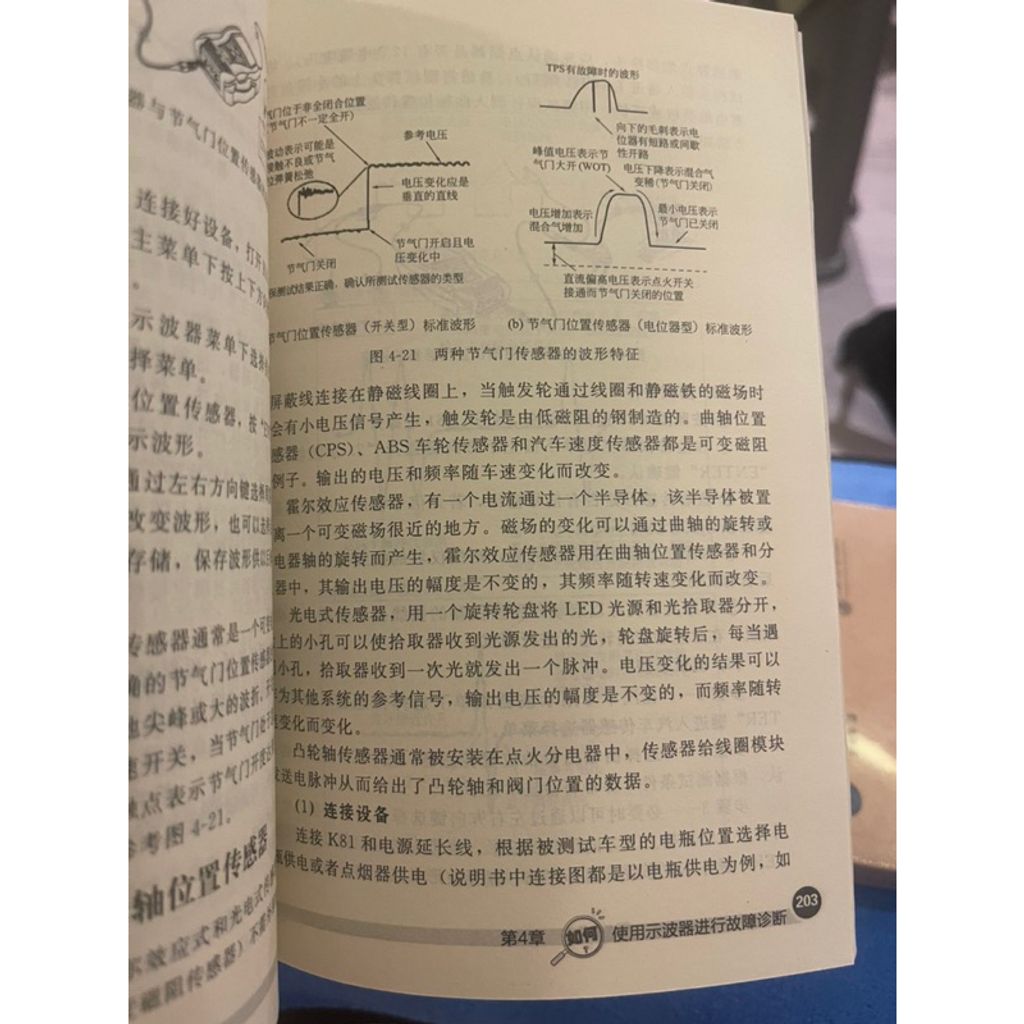 器与节气门位置传感器
连接好设备，打开
主菜单下按上下方
示波器菜单下选择
择菜单。
位置传感器，按
示波形。
通过左右方向键选择
改变波形，也可以
存储，保存波形供以
传感器通常是一个可
确的节气门位置传感器
尖峰或大的波折。
开关，当节气门处于
触点表示节气门开度
参考图 4-21。
轴位置传感器
尔效应式和光电式传
磁阻传感器）
气门位于非全闭合位置
节气门不一定全开）
波动表示可能是
接触不良或节气
位弹簧松弛
参考电压
电压变化应是
垂直的直线
节气门开启且电
压变化中
节气门关闭
保测试结果正确，确认所测试传感器的类型
TPS有故障时的波形
向下的毛刺表示电
位器有短路或间歇
性开路
峰值电压表示节
气门大开(WOT)
电压下降表示混合气
变稀(节气门关闭)
电压增加表示
混合气增加
最小电压表示
节气门已关闭
直流偏高电压表示点火开关
接通而节气门关闭的位置
节气门位置传感器（开关型）标准波形
(b) 节气门位置传感器（电位器型）标准波形
图 4-21 两种节气门传感器的波形特征
屏蔽线连接在静磁线圈上，当触发轮通过线圈和静磁铁的磁场时
会有小电压信号产生，触发轮是由低磁阻的钢制造的。曲轴位置
感器（CPS）、ABS 车轮传感器和汽车速度传感器都是可变磁阻
例子。输出的电压和频率随车速变化而改变。
霍尔效应传感器，有一个电流通过一个半导体，该半导体被置
离一个可变磁场很近的地方。磁场的变化可以通过曲轴的旋转或
电器轴的旋转而产生，霍尔效应传感器用在曲轴位置传感器和分
器中，其输出电压的幅度是不变的，其频率随转速变化而改变。
光电式传感器，用一个旋转轮盘将 LED 光源和光拾取器分开，
上的小孔可以使拾取器收到光源发出的光，轮盘旋转后，每当遇
小孔，拾取器收到一次光就发出一个脉冲。电压变化的结果可以
为其他系统的参考信号，输出电压的幅度是不变的，而频率随转
变化而变化。
凸轮轴传感器通常被安装在点火分电器中，传感器给线圈模块
送电脉冲从而给出了凸轮轴和阀门位置的数据。
(1) 连接设备
连接 K81 和电源延长线，根据被测试车型的电瓶位置选择电
瓶供电或者点烟器供电（说明书中连接图都是以电瓶供电为例，如
第4章 如何 使用示波器进行故障诊断 203